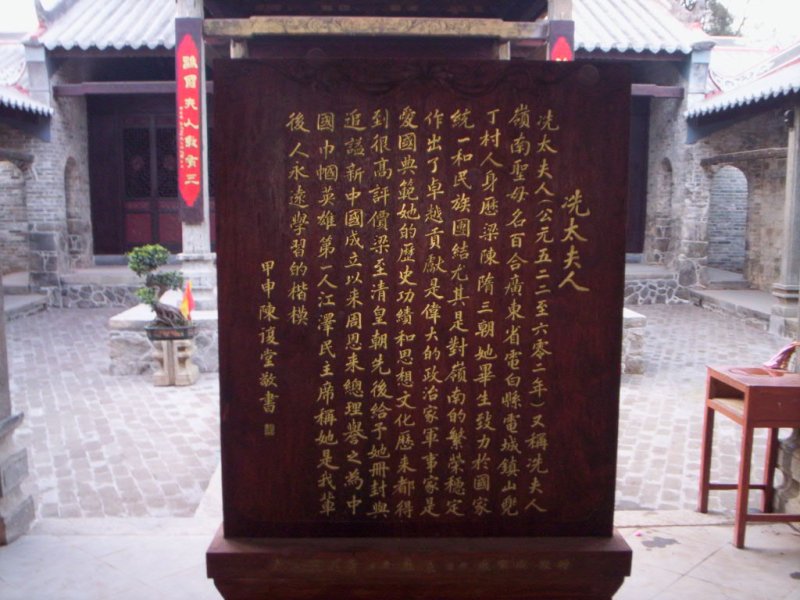 冼太夫人
冼太夫人（公元五二二至六零二年）又稱冼夫人
嶺南聖母名百合廣東省電白縣電城鎮山兜
丁村人身歷梁陳隋三朝她畢生致力於國家
統一和民族團結尤其是對嶺南的繁榮穩定
作出了卓越貢獻是偉大的政治家軍事家是
愛國典範她的歷史功績和思想文化歷来都得
到很高評價梁至清皇朝先後給予她冊封與
追謚新中國成立以来周恩来總理譽之為中
國巾幗英雄第一人江澤民主席稱她是我輩
後人永遠學習的楷模
甲申陳謖堂敬書